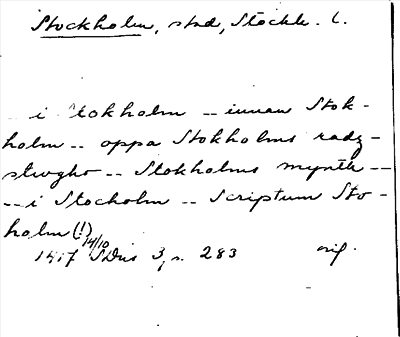 Stockholm, stad, Stockh. l.
i Stokholm -- innan Stok-
holm -- oppa Stokholms radz-
stwgho -- Stokholms myntk --
-- i Stocholm -- Scriptum Sto-
holm (!)
14/10
1417 SDns 3, n. 283 orig.